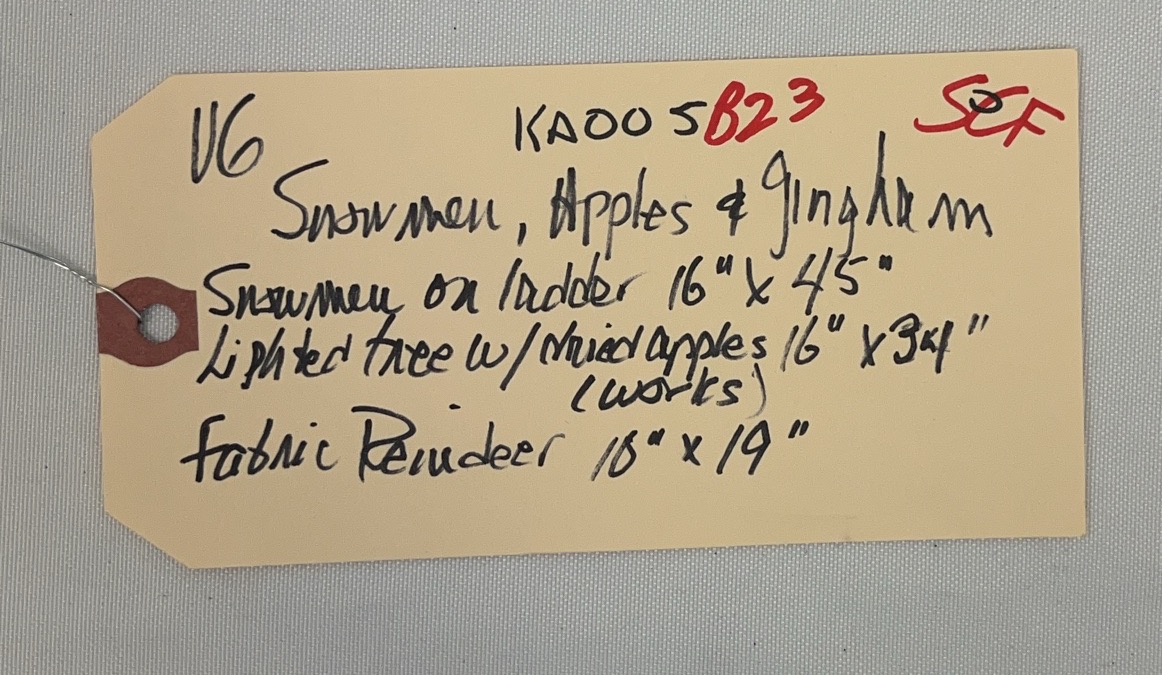 V6 KA005 B23 SCF
Snowmen, Apples & gingham
Snowmen on ladder 16" x 45"
Lighted tree w/ dried apples 16" x 34"
(works)
Fabric Reindeer x 19"